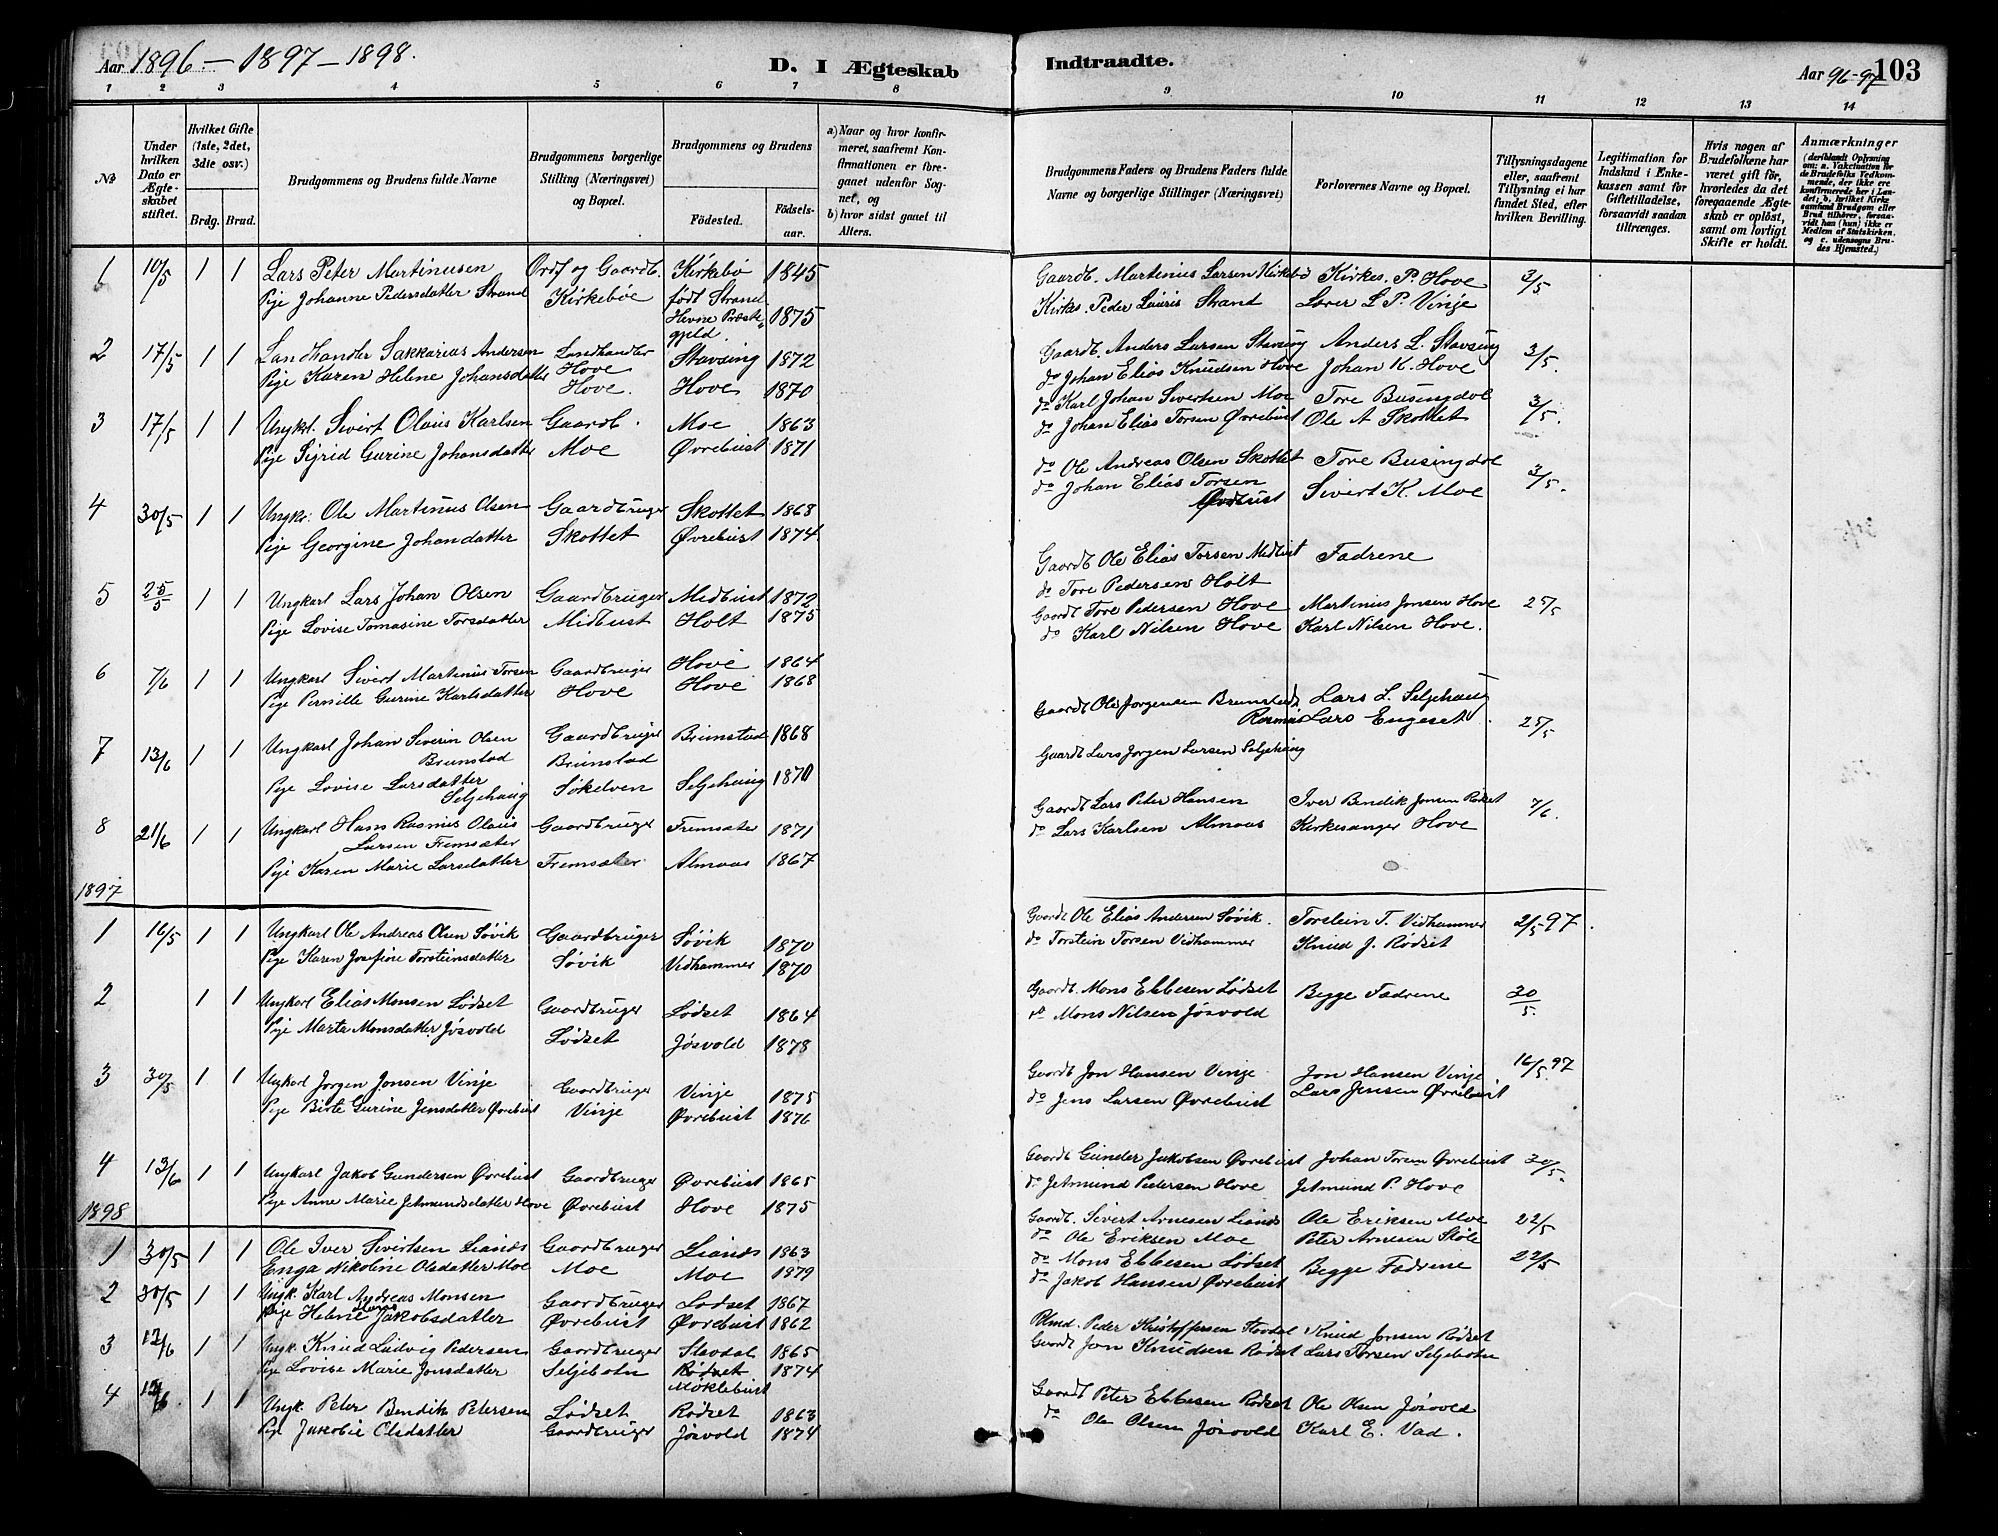 Aar 1896 - 1897 - 1898.
D. I Ægteskab
Indtraadte.
Aar 96-97
103
1 2 3 4 5 6 7 8
9 10 11 12 13 14
№
Under hvilken Dato er Ægteskabet stiftet.
Hvilket Gifte (1ste, 2det, 3die osv.)
Brdg. Brud.
Brudgommens og Brudens fulde Navne
Brudgommens borgerlige Stilling (Næringsvei) og Bopæl.
Brudgommens og Brudens
Fødested. Fødselsaar.
a) Naar og hvor konfirmeret, saafremt Konfirmationen er foregaaet udenfor Sognet, og
b) hvor sidst gaaet til Alters.
Brudgommens Faders og Brudens Faders fulde Navne og borgerlige Stillinger (Næringsvei)
Forlovernes Navne og Bopæl.
Tillysningsdagene eller, saafremt Tillysning ei har fundet Sted, efter hvilken Bevilling.
Legitimation for Indskud i Enkekassen samt for Giftetilladelse, forsaavidt saadan tiltrænges.
Hvis nogen af Brudefolkene har været gift før, hvorledes da det foregaaende Ægteskab er opløst, samt om lovligt Skifte er holdt.
Anmærkninger
(deriblandt Oplysning om: a. Vakcination for de Brudefolks Vedkommende, der ikke ere konfirmerede her i Landet; b. hvilket Kirkesamfund Brudgom eller Brud tilhører, forsaavidt han (hun) ikke er Medlem af Statskirken, og c. udensogns Brudes Hjemsted.)
1 10/5 1 1 Lars Peter Martinusen Ordf og Gaardb. Kirkebø 1845 Gaardb. Martinus Larsen Kirkebø Kirkes. P. Hove 3/5
Pige Johanne Pedersdatter Strand Kirkebøe født Strand Hevne Præstegjeld 1875 Kirkes. Peder Lauris Strand Lærer L P. Vinje
2 17/5 1 1 Landhandler Sakkarias Andersen Landhandler Hove Stavsing 1872 Gaardb. Anders Larsen Stavsing Anders L. Stavsing 3/5.
Pige Karen Helene Johansdatter Hove. Hove 1870 do Johan Elias Knudsen Hove Johan K. Hove
3 17/5 1 1 Ungkrl. Sivert Olaus Karlsen Gaardb. Moe 1863 do Karl Johan Sivertsen Moe Tore Busingdal 3/5.
Pige Sigrid Gurine Johansdatter Moe Øvrebust 1871 do Johan Elias Torsen Øvrebust Ole A Skottet
4 30/5 1 1 Ungkr: Ole Martinus Olsen Gaardbruger Skottet 1868 do Ole Andreas Olsen Skottet Tore Busingdal 3/5.
Pige Georgine Johandatter Skottet Øvrebust 1874 do Johan Elias Torsen Øvrebust Sivert K. Moe
5 25/5 1 1 Ungkarl Lars Johan Olsen Gaardbruger Midbust 1872 Gaardb Ole Elias Torsen Midbust Fædrene
Pige Lovise Tomasine Torsdatter Midbust Holt 1875 do Tore Pedersen Holt
6 7/6 1 1 Ungkarl Sivert Martinus Torsen Gaardbruger Hove 1864 Gaardb Tore Pedersen Hove Martinus Jonsen Hove 25/5
Pige Pernille Gurine Karlsdatter Hove Hove 1868 do Karl Nilsen Hove Karl Nilsen Hove.
7 13/6 1 1 Ungkarl Johan Severin Olsen Brunstad Gaardbruger Brunstad Brunstad 1868 Gaardb Ole Jørgensen Brunstad Lars L. Seljehaug 25/5
Rasmus Lars Engeset
Pige Lovise Larsdatter Seljehaug Søkelven Seljehaug 1870 Gaardb Lars Jørgen Larsen Seljehaug
8 21/6 1 1 Ungkarl Hans Rasmus Olaus Larsen Fremsæter Gaardbruger Fremsæter 1871 Gaardb Lars Peter Hansen Iver Bendik Jonsen Rødset 7/6.
Pige Karen Marie Larsdatter Fremsæter Almaas 1867 do Lars Karlsen Almaas Kirkesanger Hove
1897
1 16/5 1 1 Ungkarl Ole Andreas Olsen Søvik Gaardbruger Søvik 1870 Gaardb Ole Elias Andersen Søvik Torstein T. Vidhammer 2/5-97.
Pige Karen Josefine Torsteinsdatter Søvik Vidhammer 1870 do Torstein Torsen Vidhammer Knud J. Rødset
2 1 1 Ungkarl Elias Monsen Lødset Gaardbruger Lødset 1864 Gaardb. Mons Ebbesen Lødset Begge Fædrene 30/5.
Pige Marta Monsdatter Jøsvold Lødset Jøsvold 1878 do Mons Nilsen Jøsvold
3 30/5 1 1 Ungkarl Jørgen Jonsen Vinje Gaardbruger Vinje 1875 Gaardb Jon Hansen Vinje Jon Hansen Vinje 16/5.97
Pige Birte Gurine Jensdatter Øvrebust Vinje Øvrebust 1876 do Jens Larsen Øvrebust Lars Jensen Øvrebust
4 13/6 1 1 Ungkarl Jakob Gundersen Øvrebust Gaardbruger Øvrebust 1865 Gaardb Gunder Jakobsen Øvrebust Johan Torsen Øvrebust 30/5.
Pige Anne Marie Jetmundsdatter Hove Øvrebust Hove 1875 do Jetmund Pedersen Hove Jetmund P. Hove
1898
1 30/5 1 1 Ole Iver Sivertsen Liands Gaardbruger Liands 1863 Gaardb. Sivert Arnesen Liands Ole Eriksen Moe 22/5
Enga Nikoline Olsdatter Moe Moe Moe 1879 do Ole Eriksen Moe Peter Arnesen Støle
2 30/5 1 1 Ungk. Karl Andreas Monsen Gaardbruger Lødset 1867 do Mons Ebbesen Lødset Begge Fædrene 22/5
Pige Helene Jakobsdatter Øvrebust Øvrebust 1862 do Jakob Hansen Øvrebust
3 12/6 1 1 Ungk. Knud Ludvig Pedersen Gaardbruger Stavdal 1865 Peder Kristoffersen Knud Jonsen Rødset
Pige Lovise Marie Jonsdatter Seljebotn Rødset Møklebust 1874 Gaardb Jon Knudsen Rødset Lars Torsen Seljebotn
4 12/6 1 1 Ungk. Peter Bendik Petersen Lødset Rødset 1863 Gaardb Peter Ebbesen Rødset Ole Olsen Jøsvold
Pige Jakobie Olsdatter Gaardbruger Jøsvold 1874 do Ole Olsen Jøsvold Karl E. Vad.